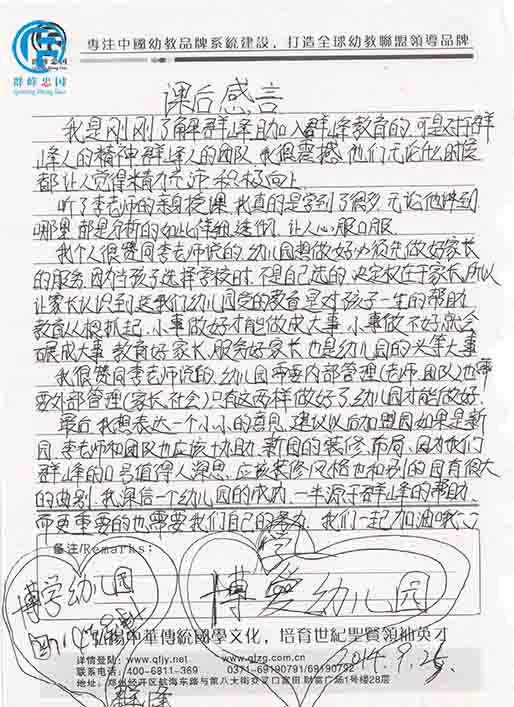 群峰忠国
Qunfeng Zhong Guo
專注中國幼教品牌系統建設，打造全球幼教聯盟領導品牌
课后感言
我是刚刚了解群峰且加入群峰教育的,可是对于群
峰人的精神群峰人的团队,我很震撼,他们无论什么时候
都让人觉得精力充沛 积极向上.
听了李老师的亲身授课,我真的是学到了很多,无论他讲到
哪里,都是分析的如此详细透彻,让人心服口服.
我个人很赞同李老师说的,幼儿园想做好必须先做好家长
的服务,因为当孩子选择学校时,不是自己选的,决定权在于家长,所以
让家长认识到送我们幼儿园受的教育是对孩子一生的帮助.
教育从根抓起,小事做好才能做成大事,小事做不好就会
碍成大事,教育好家长,服务好家长也是幼儿园的头等大事
我很赞同李老师说的,幼儿园需要内部管理(老师,团队)也需
要外部管理(家长,社会)只有这两样做好了幼儿园才能做好.
最后我想表达一个小小的意见,建议以后加盟园如果是新
园,李老师和团队也应该士协助,新园的装修,布局,因为我们
群峰的口号值得人深思,应该装修风格也和别的园有很大
的曲别,我深信一个幼儿园的成功,一半源于群峰的帮助,
而更重要的也需要我们自己的努力,我们一起加油哦
备注/Remarks:
博学幼儿园
博学幼儿园
弘揚中華傳統國學文化，培育世紀聖賢領袖英才
2014.9.25.
详情登陆: www.qfjy.net www.qfzg.com.cn
联系电话: 400-6811-369 0371-69190791/69190792
地址: 郑州经开区航海东路与第八大街交叉口富田.财富广场1号楼28层
群峰